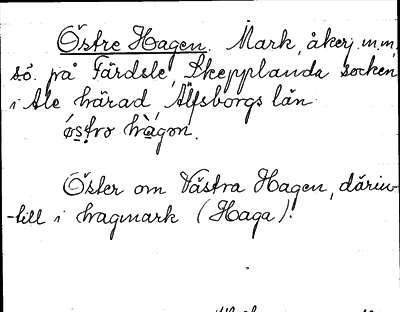 Östre Hagen. Mark, åkerj. m.m.
sö. på Färdsle, Skepplanda socken
i Ale härad, Älfsborgs län.
østrə hàgən.
Öster om Västra Hagen, därin-
-till i hagmark (Haga).